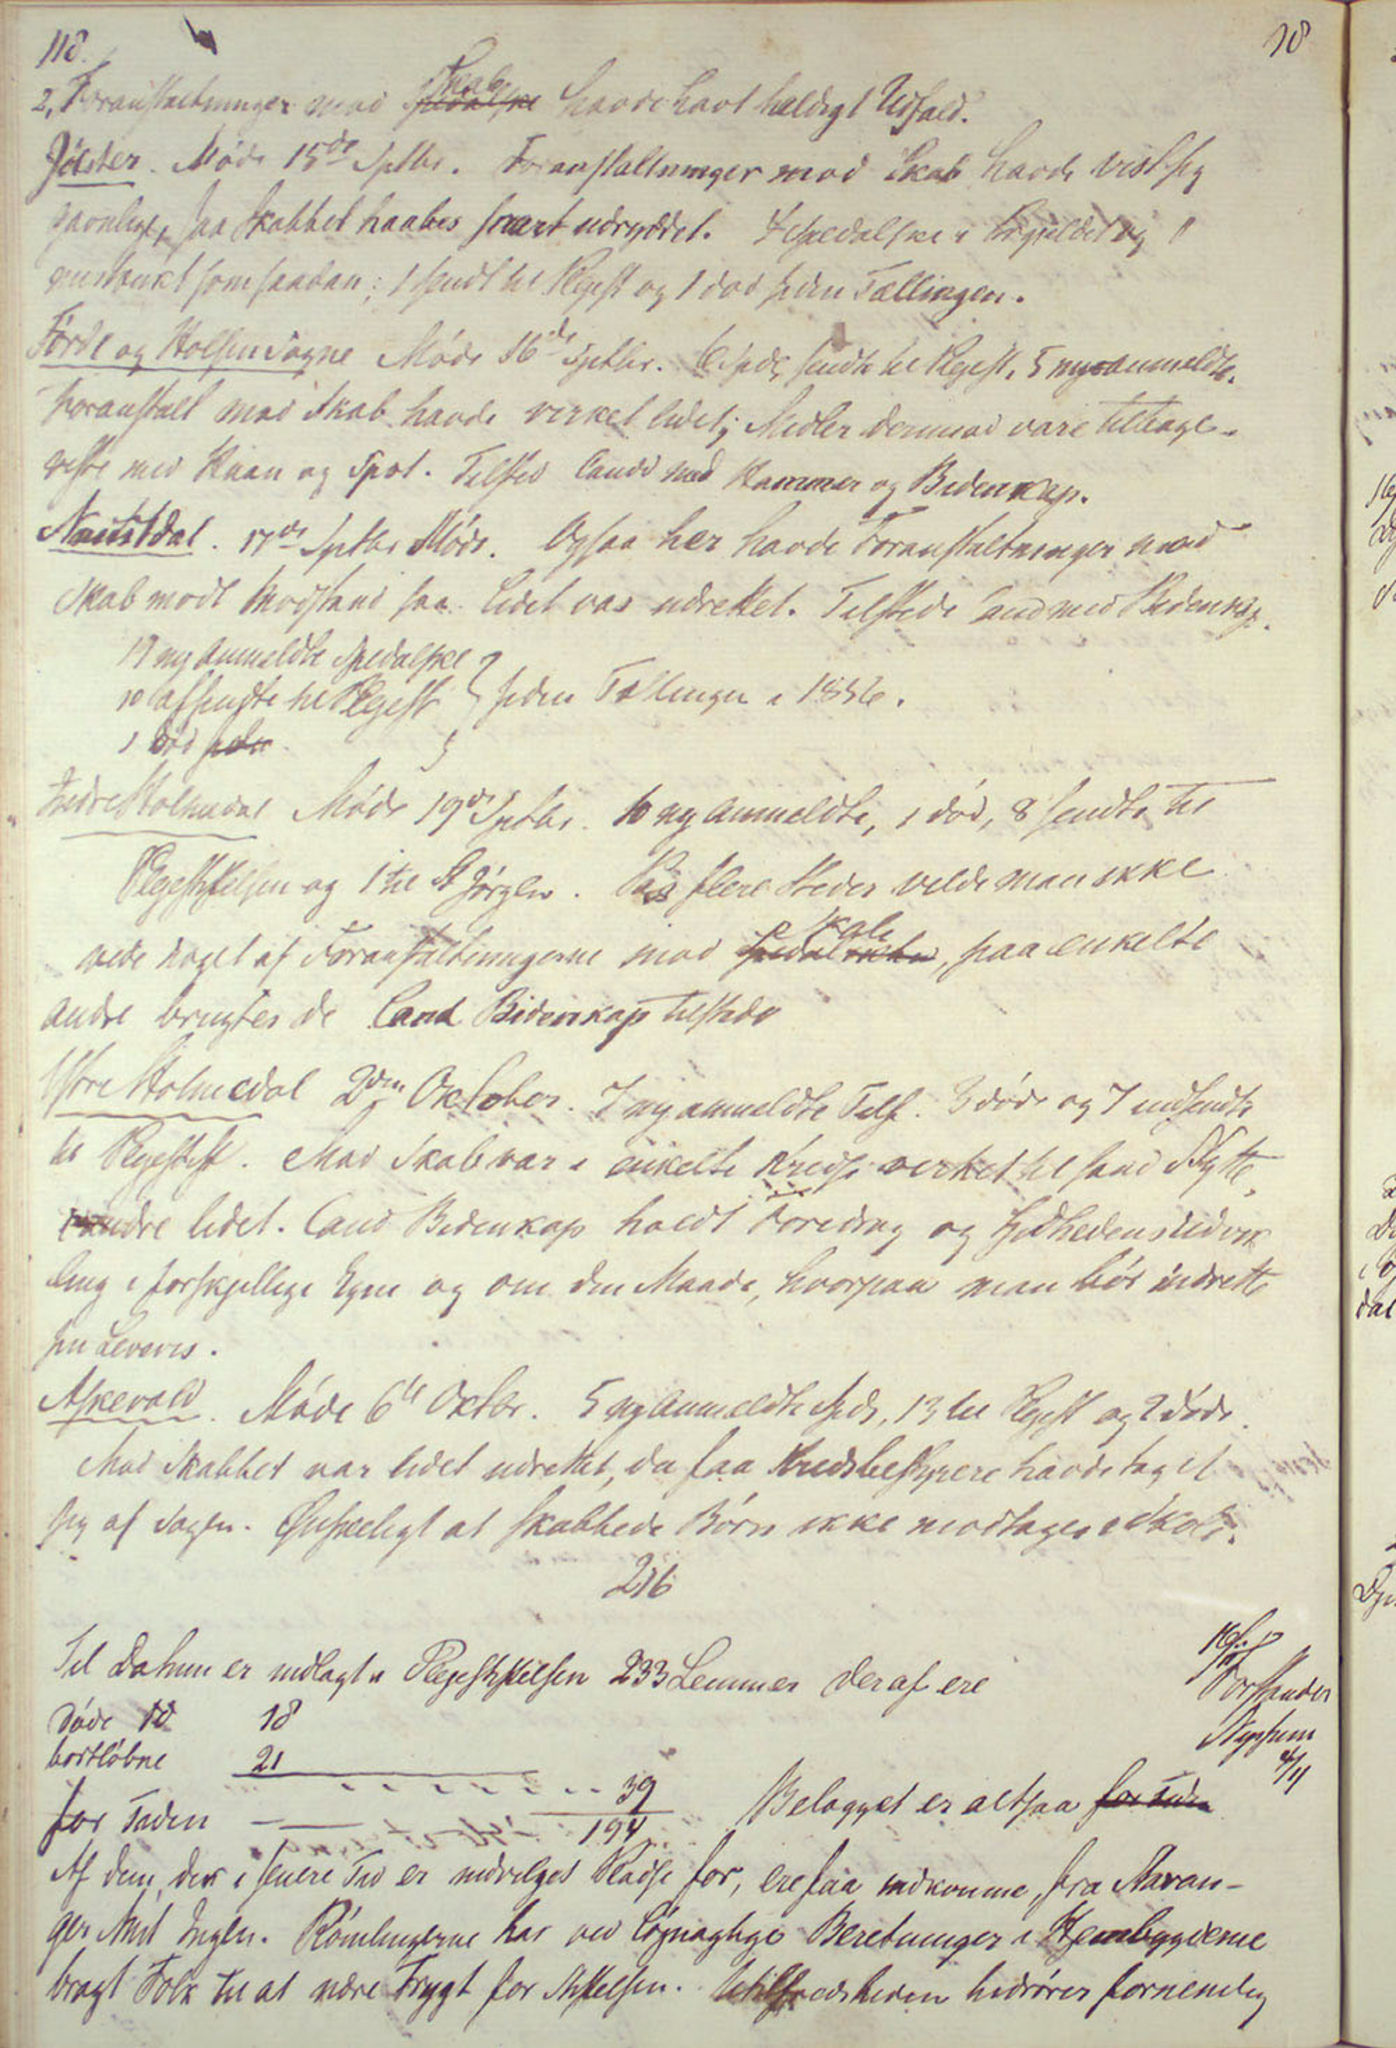 118.
18
2, Foranstaltninger mod Skab spedalske havde havt heldigt Udfald.
Jölster. Møde 15de Septbr. Foranstaltninger mod Skab havde vist sig
gavnlige, saa Skabbet haabes snart udryddet. 4 spedalske og 1
som saadan; 1 sendt til Plejest og 1 død siden Tællingen.
Förde og Holsen Sogne Møde 16de Septbr. 6 spds sendte til Plejest, 5 ny anmeldte.
Foranstalt mod Skab havde virket lidet; Midler derimod vare tilbage-
viste med Haan og Spot. Tilsted Cand med Hammer og Bidenkap.
Naustdal. 17de Septbr Møde. Ogsaa her havde Foranstaltninger mod
Skab mødt Modstand saa lidet var udrettet. Tilstede Cand med Bidenkap.
17 ny anmeldte Spedalske
10 afsendte til Plejest } siden Tællingen i 1856.
1 død siden
Indre Holmedal Møde 19de Septbr. 10 ny anmeldte, 1 død, 8 sendte til
Plejestiftelsen og 1 til St Jørgen. Paa flere Steder vilde man ikke
vide noget af Foranstaltningerne mod Skab spedalskhed, paa enkelte
andre brugtes de Cand Bidenkap tilstede
Ytre Holmedal 2den Oktober. 7 ny anmeldte Tilf. 3 døde og 7 indsendte
til Plejestift. Mod Skab var i enkelte Kredse virket til saad Nytte,
i andre lidet. Cand Bidenkap holdt Foredrag og Sygdommens Udvik
ling i forskjellige Egne og om den Maade, hvorpaa man bör indrette
sin Levevis.
Askevold. Møde 6te Oktbr. 5 ny anmeldte spds, 13 til Plejest og 2 døde.
Mod Skabbet var lidet udrettet, da faa Kredsbestyrere havde taget
sig af Sagen. Ønskeligt at skabbede Børn ikke modtages i Skole.
216
Til Datum er indlagt i Plejestiftelsen 233 Lemmer deraf ere
Forstander
4/11
Døde 18 18
bortløbne 21
39
for Tiden 194 Belægget er altsaa for Tiden
Af dem, der i senere Tid er indvilget Pladse for, ere faa indkomne, fra Stavan-
ger Amt Ingen. Rømlingerne har ved løgnagtige Beretninger i Hjembygderne
bragt Folk til at nære Frygt for Stiftelsen. Utilfredsheden hidrører fornemlig